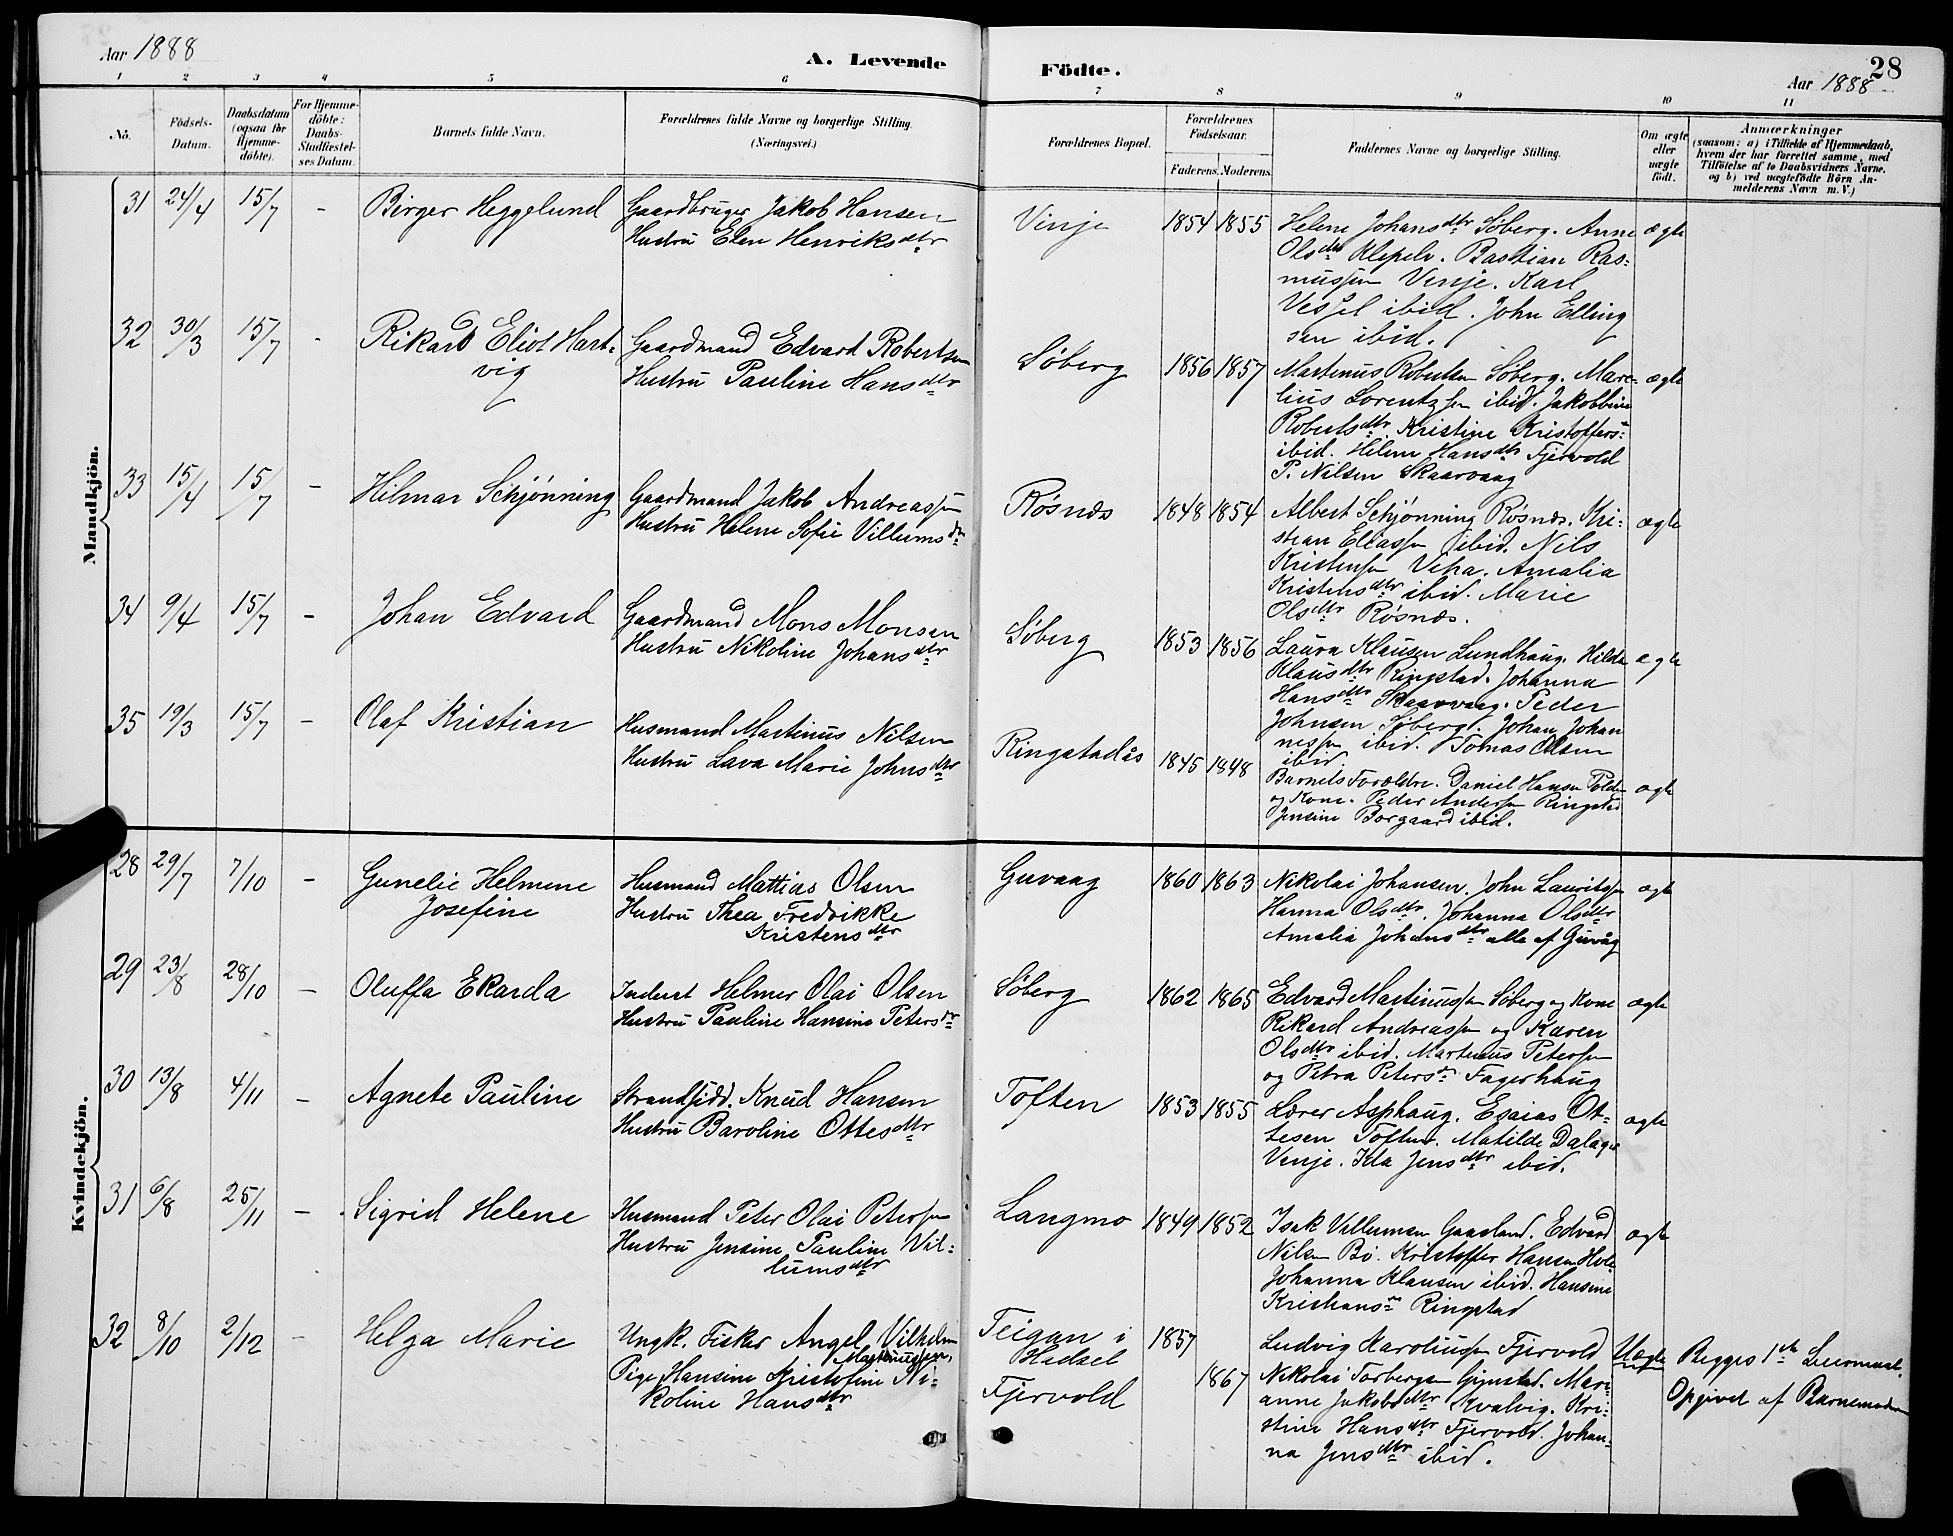 Aar 1888
A. Levende Födte.
28
Aar 1888
1 2 3 4 5 6 7 8 9 10 11
No.
Födsels-
Datum.
Daabsdatum
(ogsaa for
Hjemme-
döbte).
For Hjemme-
döbte:
Daabs-
Stadfæstel-
ses Datum.
Barnets fulde Navn.
Forældrenes fulde Navne og borgerlige Stilling.
(Næringsvei.)
Forældrenes Bopæl.
Forældrenes
Födselsaar.
Faderens. Moderens.
Faddernes Navne og borgerlige Stilling.
Om ægte
eller
uægte
födt.
Anmærkninger
(saasom: a) i Tilfælde af Hjemmedaab,
hvem der har forrettet samme, med
Tilföielse af to Daabsvidners Navne,
og b) ved uægtefödte Börn An-
melderens Navn m. V.)
Mandkjön.
31 24/4 15/7 - Birger Heggelund
Gaardbruger Jakob Hansen
Hustru Elen Henriksdtr
Vinje 1854 1855
Helene Johansdtr Søberg. Anne
Olsdtr Klepelv. Bastian Ras=
mussen Vinje. Karl
Vessel ibid. John Elling
sen ibid.
ægte
32 30/3 15/7 - Rikard Eliot Hart=
vig
Gaardmand Edvard Robertsen
Hustru Pauline Hansdtr
Søberg 1856 1857
Martinus Robertsen Søberg. Mare=
lius Lorentzsen ibid. Jakobbine
Robertsdtr Kristine Kristoffers=
ibid. Helene Hansdtr Fjervold
P. Nilsen Skaarvaag
ægte
33 15/4 15/7 - Hilmar Schjønning
Gaardmand Jakob Andreassen
Hustru Helene Sofie Villumsdtr
Røsnæs 1848 1854
Albert Schjønning Røsnæs. Kri=
stian Eliassen ibid. Nils
Kristensen Vepa. Amalia
Kristensdtr ibid. Marie
Olsdtr Røsnæs.
ægte
34 9/4 15/7 - Johan Edvard
Gaardmand Mons Monsen
Hustru Nikoline Johansdtr
Søberg 1853 1856
Laura Klausen Lundhaug. Hilda
Klausdtr Ringstad. Johanna
Hansdtr Skaarvaag. Peder
Johnsen Søberg. Johan Johan
nessen ibid. Tomas Olsen
ibid.
ægte
35 19/3 15/7 - Olaf Kristian
Husmand Martinus Nilsen
Hustru Lava Marie Johnsdtr
Ringstadås 1845 1848
Barnets Forældre. Daniel Hansen Polden
og Kone. Peder Andersen Ringstad
Jensine Borgaard ibid.
ægte
Kvindekjön.
28 29/7 7/10 - Gunelie Helmine
Josefine
Husmand Mattias Olsen
Hustru Thea Fredrikke
Kristensdtr
Guvaag 1860 1863
Nikolai Johansen. John Lauritsen
Hanna Olsdtr. Johanna Olsdtr
Amalia Johansdtr alle af Guvåg
ægte
29 23/8 28/10 - Oluffa Ekarda
Inderst Helmer Olai Olsen
Hustru Pauline Hansine Petersdtr
Søberg 1862 1865
Edvard Martinussen Søberg og Kone
Rikard Andreassen og Karen
Olsdtr ibid. Martinus Petersen
og Petra Petersdtr Fagerhaug
ægte
30 13/8 4/11 - Agnete Pauline
Strandsidd. Knud Hansen
Hustru Baroline Ottesdtr
Toften 1853 1855
Lærer Asphaug. Esaias Ot=
tesen Toften. Matilde Dalager
Vinje. Ida Jensdtr ibid.
ægte
31 6/8 25/11 - Sigrid Helene
Husmand Peter Olai Petersen
Hustru Jensine Pauline Wil=
lumsdtr
Langmo 1849 1852
Isak Villumsen Gaasland. Edvard
Nilsen Bø. Kristoffer Hansen Hole
Johanna Klausen ibid. Hansine
Kristiansdtr Ringstad
ægte
32 8/10 2/12 - Helga Marie
Ungk. Fisker Angel Vilhelm
Martinussen,
Pige Hansine Kristofine Ni=
koline Hansdtr
Teigan i
Hadsel
Fjervold
1857
1867
Ludvig Karoliussen Fjervold
Nikolai Torbergsen Gimstad. Mari=
anne Jakobsdtr Kvalvig. Kri=
stine Hansdtr Fjervold. Johan=
na Jensdtr ibid.
Uægte
Begges 1ste Leiermaal.
Opgivet af Barnemoderen